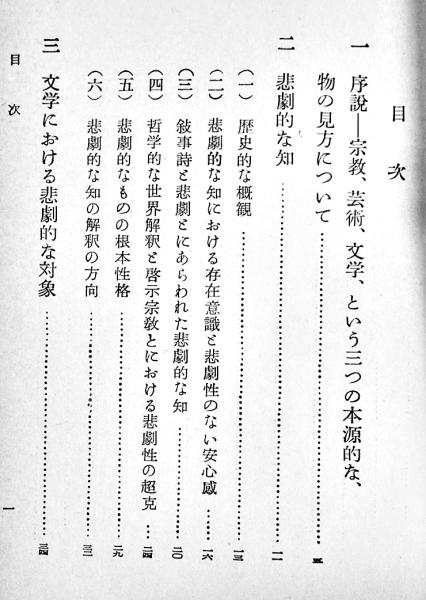 目次
一 序説―宗教、芸術、文学、という三つの本源的な、
物の見方について……五
二 悲劇的な知……一一
(一) 歴史的な概観……一三
(二) 悲劇的な知における存在意識と悲劇性のない安心感……一六
(三) 敍事詩と悲劇とにあらわれた悲劇的な知……二〇
(四) 哲学的な世界解釈と啓示宗教とにおける悲劇性の超克…二四
(五) 悲劇的なものの根本性格……二九
(六) 悲劇的な知の解釈の方向……三二
三 文学における悲劇的な対象……三四
目次
一